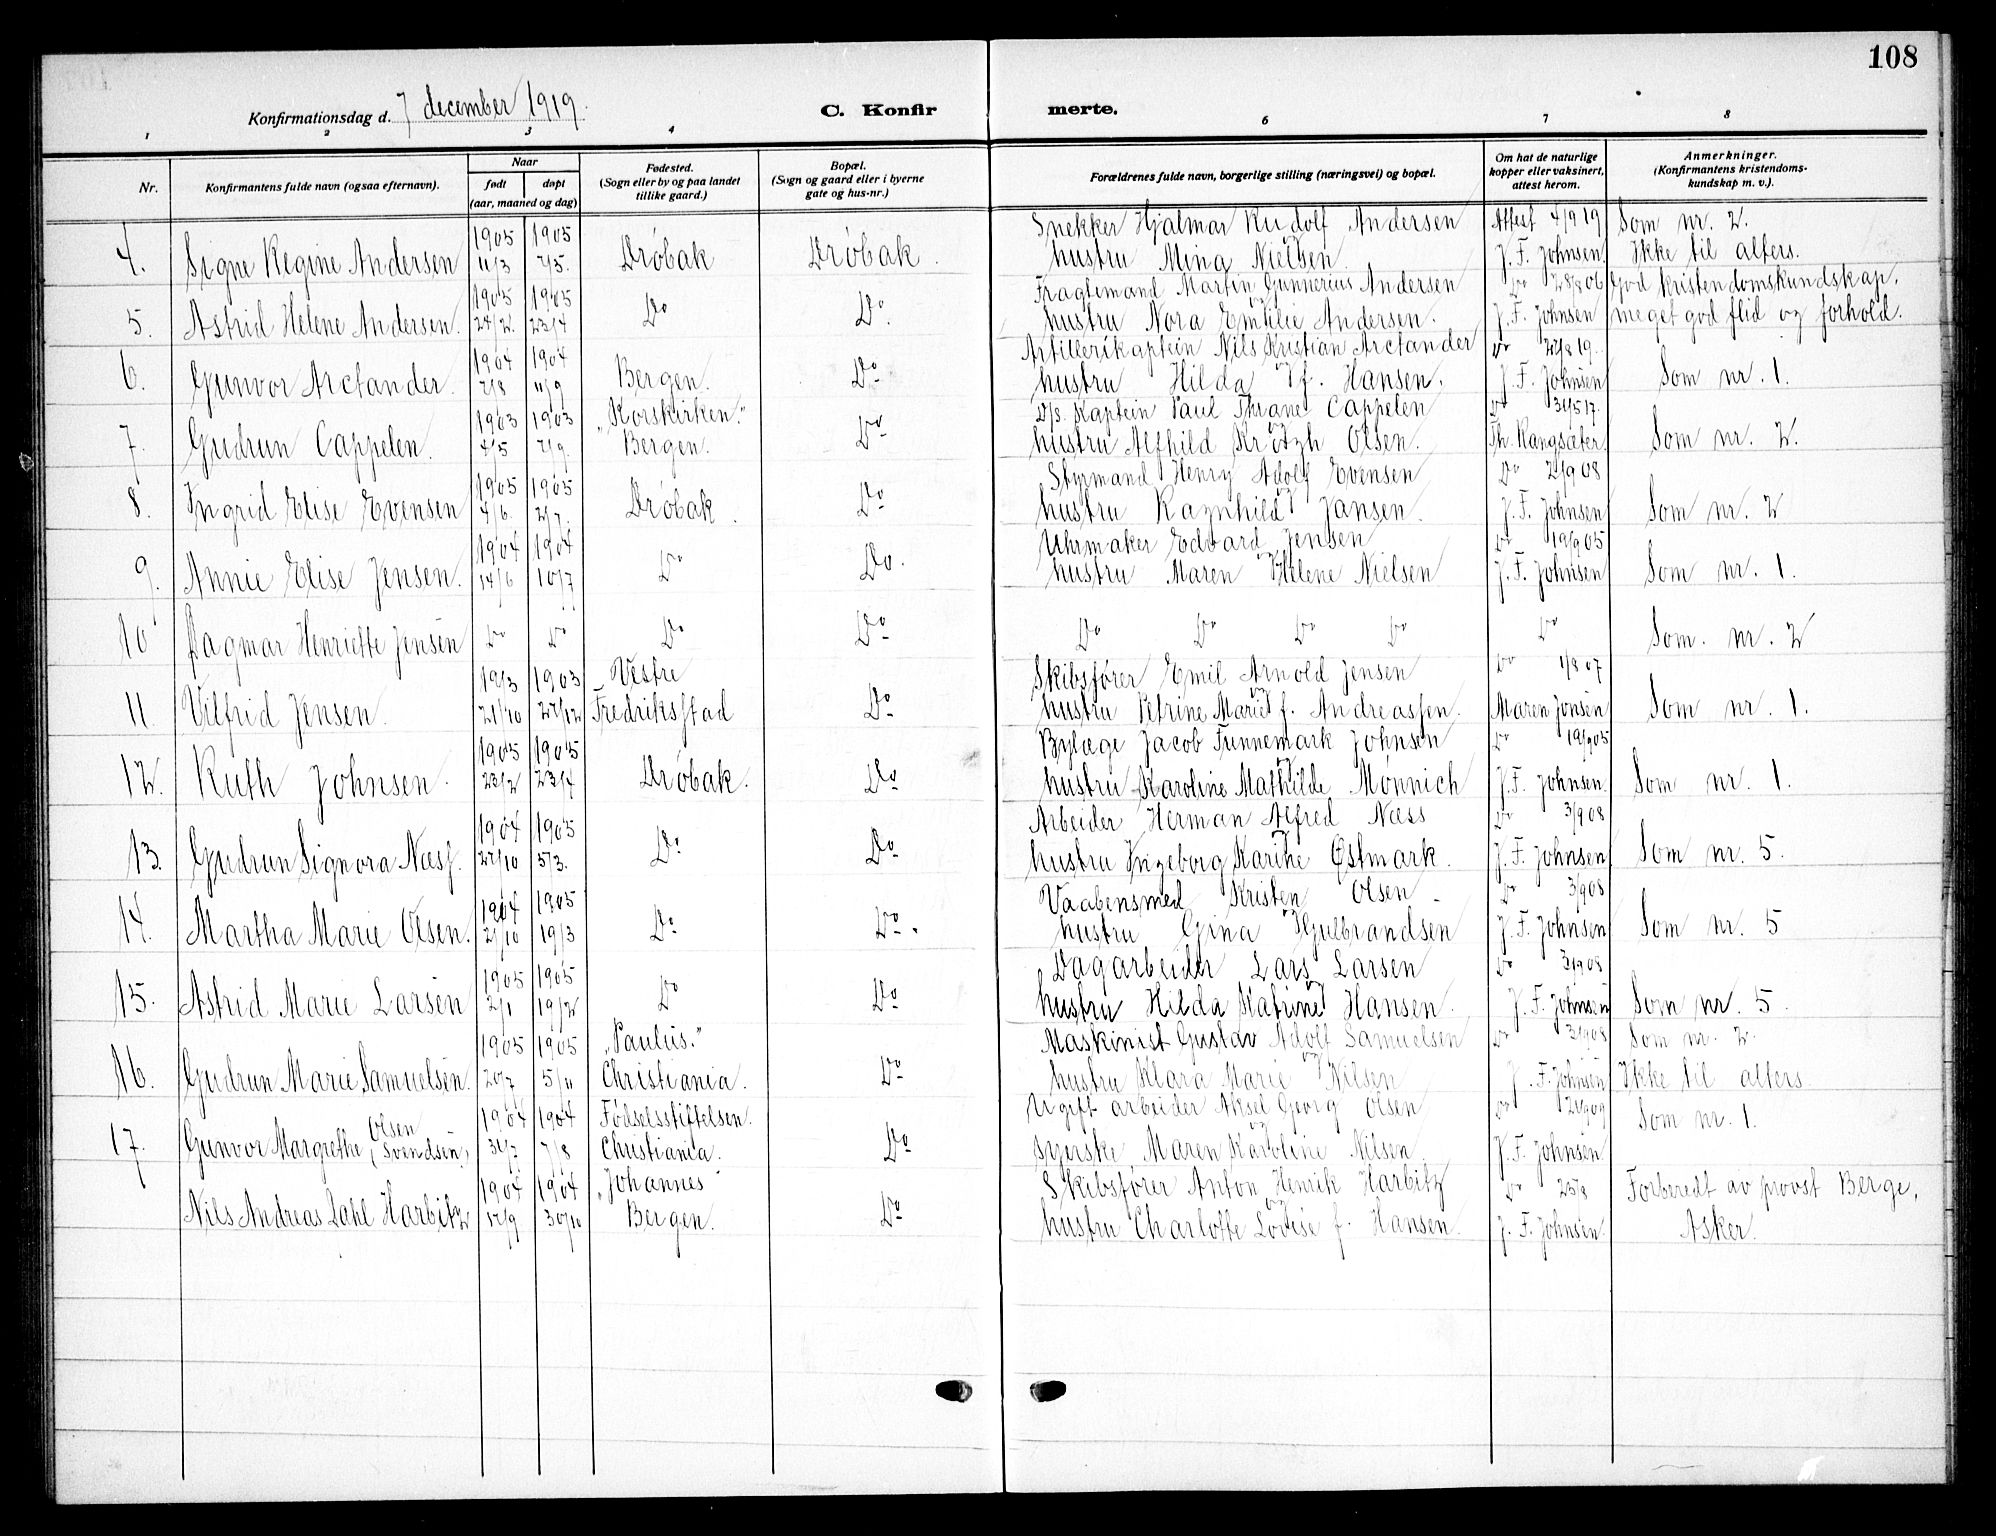 108
Konfirmationsdag d. 7 december 1919.
C. Konfir merte.
1 2 3 4 6 7 8
Nr. Konfirmantens fulde navn (ogsaa efternavn). Naar født døpt (aar, maaned og dag) Fødested. (Sogn eller by og paa landet tillike gaard.) Bopæl. (Sogn og gaard eller i byerne gate og hus-nr.) Forældrenes fulde navn, borgerlige stilling (næringsvei) og bopæl. Om hat de naturlige kopper eller vaksinert, attest herom. Anmerkninger. (Konfirmantens kristendoms-kundskap m. v.).
1905 1905 Snekker Hjalmar Rudolf Andersen Attest 4/9 19 Som nr. 2.
4. Signe Regine Andersen 11/3 7/5. Drøbak Drøbak. hustru Mina Nielsen. J. F. Johnsen. Ikke til alters.
1905 1905 Fragtemand Martin Gunnerius Andersen Do 28/8 06 God kristendomskundskap,
5. Astrid Helene Andersen. 24/2. 23/4 Do Do. hustru Nora Emilie Andersen. J. F. Johnsen meget god flid og forhold.
1904 1904 Artillerikaptein Nils Kristian Arctander Do 22/8 19.
6. Gunvor Arctander. 2/8 11/9 Bergen. Do hustru Hilda f. Hansen. J. F. Johnsen Som nr. 1.
1903 1903 "Korskirken." D/s. Kaptein Paul Thrane Cappelen Do 31/5 17.
7. Gudrun Cappelen. 4/5 2/9. Bergen. Do hustru Alfhild Olsen. Th. Rangsæter. Som nr. 2.
1905 1905 Styrmand Henry Adolf Evensen Do 2/9 08
8. Ingrid Elise Evensen 4/6. 2/7. Drøbak. Do hustru Ragnhild Jansen. J. F. Johnsen Som nr. 2
1904 1904 Uhrmaker Edvard Jensen Do 19/9 05
9. Annie Elise Jensen. 14/6 10/7 Do Do. hustru Maren Helene Nielsen J. F. Johnsen Som nr. 1.
10 Dagmar Henriette Jensen Do Do Do Do Do Do Do Do Do Som. nr. 2
1903 1903 Vestre Skibsfører Emil Arnold Jensen Do 1/8 07
11. Vilfrid Jensen. 21/10 27/12 Fredriksstad Do hustru Petrine Marie f. Andreassen. Maren Jonsen Som nr. 1.
1905 1905 Bylæge Jacob Tunnemark Johnsen Do 19/9 05
12. Ruth Johnsen. 23/2 23/4 Drøbak. Do hustru Karoline Mathilde Mønnich J. F. Johnsen. Som nr. 1.
1904 1905 Arbeider Herman Alfred Næss Do 3/9 08
13. Gudrun Signora Næss. 27/10 5/3. Do Do hustru Ingeborg Karine Østmark. J. F. Johnsen Som nr. 5.
1904 1905 Vaabensmed Kristen Olsen Do 3/9 08
14. Martha Marie Olsen. 21/10 19/3 Do Do. hustru Gina Gulbrandsen J. F. Johnsen Som nr. 5
1905 1905 Dagarbeider Lars Larsen Do 3/9 08
15. Astrid Marie Larsen 2/1 19/2 Do Do hustru Hilda Katrine Hansen. J. F. Johnsen Som nr. 5
1905 1905 "Paulus." Maskinist Gustav Adolf Samuelsen Do 3/9 08 Som nr. 2.
16. Gudrun Marie Samuelsen. 20/7 5/11 Christiania. Do hustru Klara Marie Nilsen J. F. Johnsen Ikke til alters
1904 1904 Fødselsstiftelsen. Ugift arbeider Aksel Georg Olsen Do 21/9 09 Som nr. 1.
17. Gunvor Margrethe Olsen (Svendsen.) 31/7 7/8 Christiania. Do syerske Maren Karoline Nilsen. J. F. Johnsen.
1904 1904 "Johannes" Skibsfører Anton Henrik Harbitz Do 25/8 Forberedt av provst Berge,
Nils Andreas Dahl Harbitz 17/9 30/10 Bergen. Do hustru Charlotte Lovise f. Hansen. J. F. Johnsen. Asker.